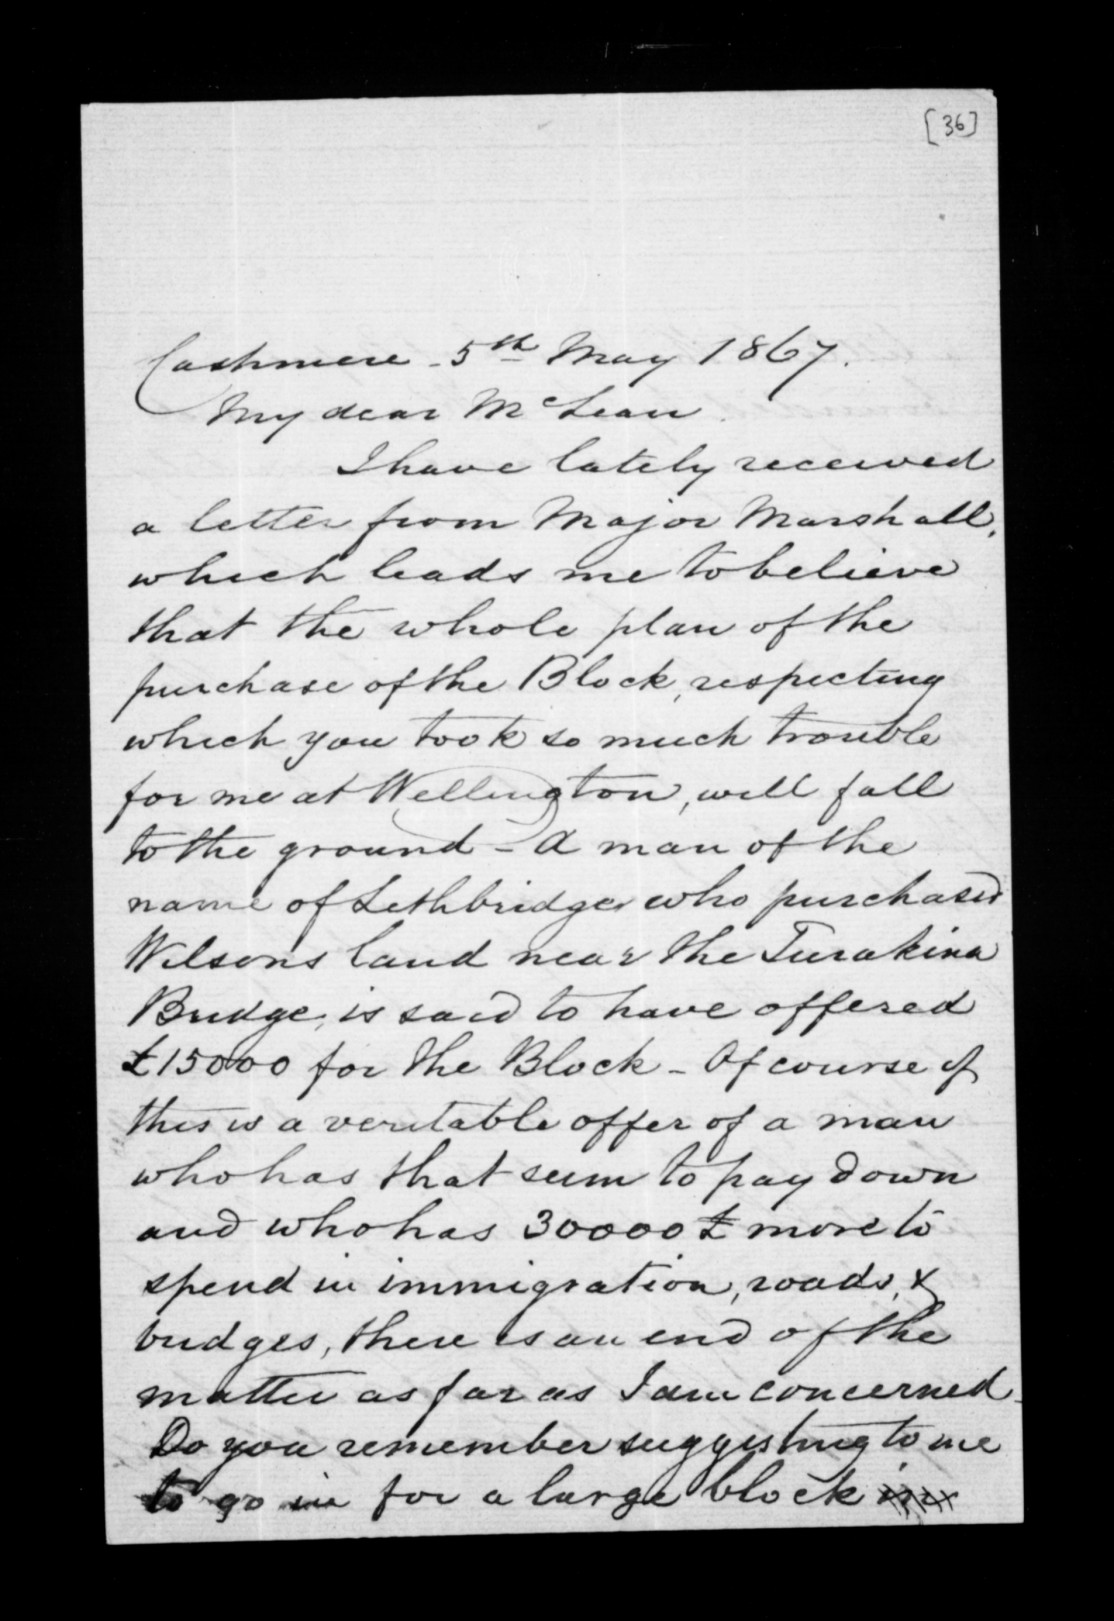 [36]
Cashmere - 5th May 1867.
My dear McLean.
I have lately received
a letter from Major Marshall,
which leads me to believe
that the whole plan of the
purchase of the Block, respecting
which you took so much trouble
for me at Wellington, will fall
to the ground - A man of the
name of Lethbridge who purchased
Wilsons land near the Turakina
Bridge, is said to have offered
£15000 for the Block - Of course if
this is a veritable offer of a man
who has that sum to pay down
and who has 30000£ more to
spend in immigration, roads, &
bridges, there is an end of the
matter as far as I am concerned -
Do you remember suggesting to me
to go in for a large block